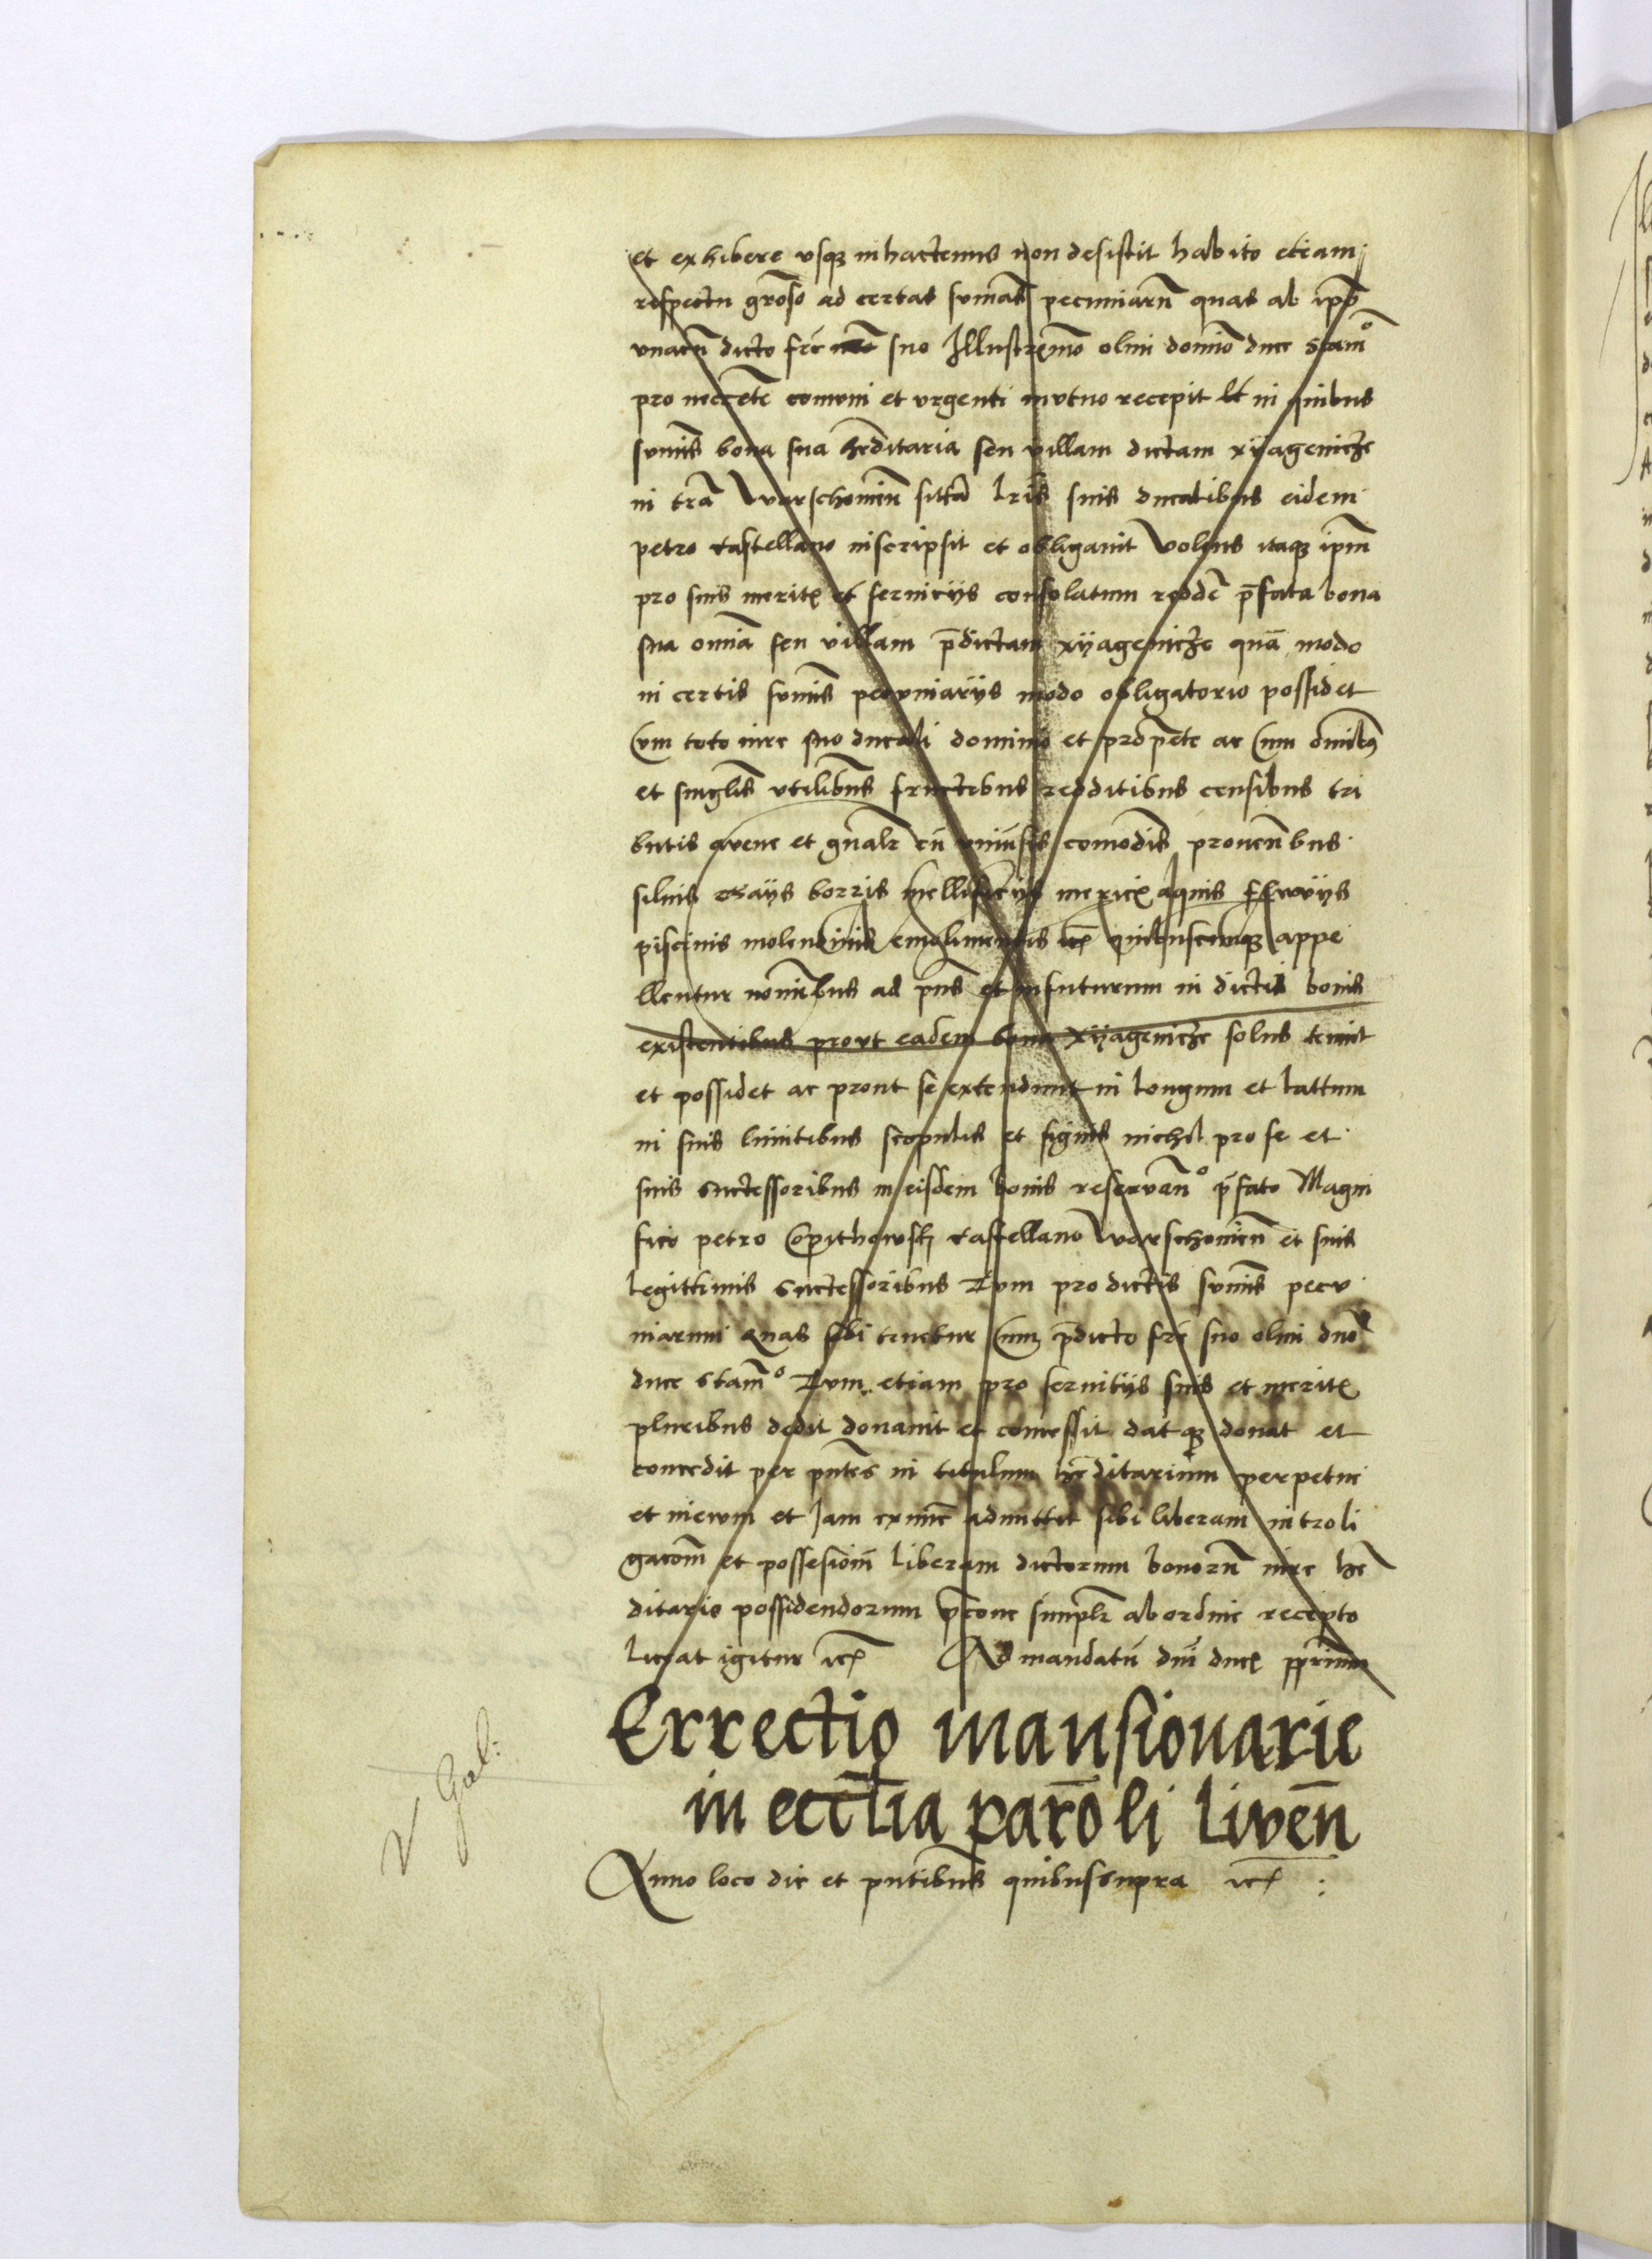 et exhibere vsq3 inhactenus non desistit habito etiam
respectu gr̄oso ad certas sum̄as pecuniarū quas ab ip̄o
vnacū dicto fr̄e suo Illustrissimo olim domino duce Stan̄o
pro nec̄ctate comuni et vrgenti mutuo recepit Et in quibus
sum̄is bona sua hr̄editaria seu villam dictam xyagenicze
in tr̄a Warschouien̄ sitā lr̄is suis ducalibus eidem
petro castellano inscripsit et obligauit Volens itaq3 ip̄m
pro suis meritꝭ et seruicÿs consolatum redde p̄fata bona
sua om̄ia seu villam p̄dictam xÿagenicze quā modo
in certis sum̄is pecuniarÿs modo obligatorio possidet
Cum toto iure suo ducali dominio et prop̄ete ac Cum om̄ibꝰ
et singl̄is vtilibus fructibus redditibus censibus tri
butis avene et gn̄alr̄ cū vniūsis comodis prouen̄bus
siluis gaÿs borris mellificÿs mericꝭ aquis fluvÿs
piscinis molendinis emolimentis etc̄ quibuscumq3 appe
llentur nom̄ibus ad pn̄s et infuturum in dictis bonis
existentibus prout eadem bona xÿagenicze solus tenuit
et possidet ac prout se extendunt in longum et lattum
in suis limitibus scopulis et signis nichil pro se et
suis Successoribus in eisdem bonis reservan̄o p̄fato Magni
fico petro Copithowskj castellano Warschouien̄ et suis
legittimis Successoribus Tum pro dictis sum̄is pecu
niarum quas sibi tenebur Cum p̄dicto fr̄e suo olim dn̄o
duce Stan̄o Tum etiam pro seruitÿs suis et meritꝭ
pluribus dedit donauit et concessit datq3 donat et
concedit per pn̄tes in titulum hr̄editarium perpetue
et in ewm et Jam exnunc admittit sibi liberam introli
gacōm et possesionē liberam dictorum bonorū iure he
ditario possidendorum p̄cone simplr̄ ab ordine recepto
liceat igitur etc̄ Ad mandatū dn̄i ducꝭ pprium
Errectio mansionarie
in eccl̄ia parōli Liven̄
Anno loco die et pn̄tibus quibus supra etc̄ :
V Gal: